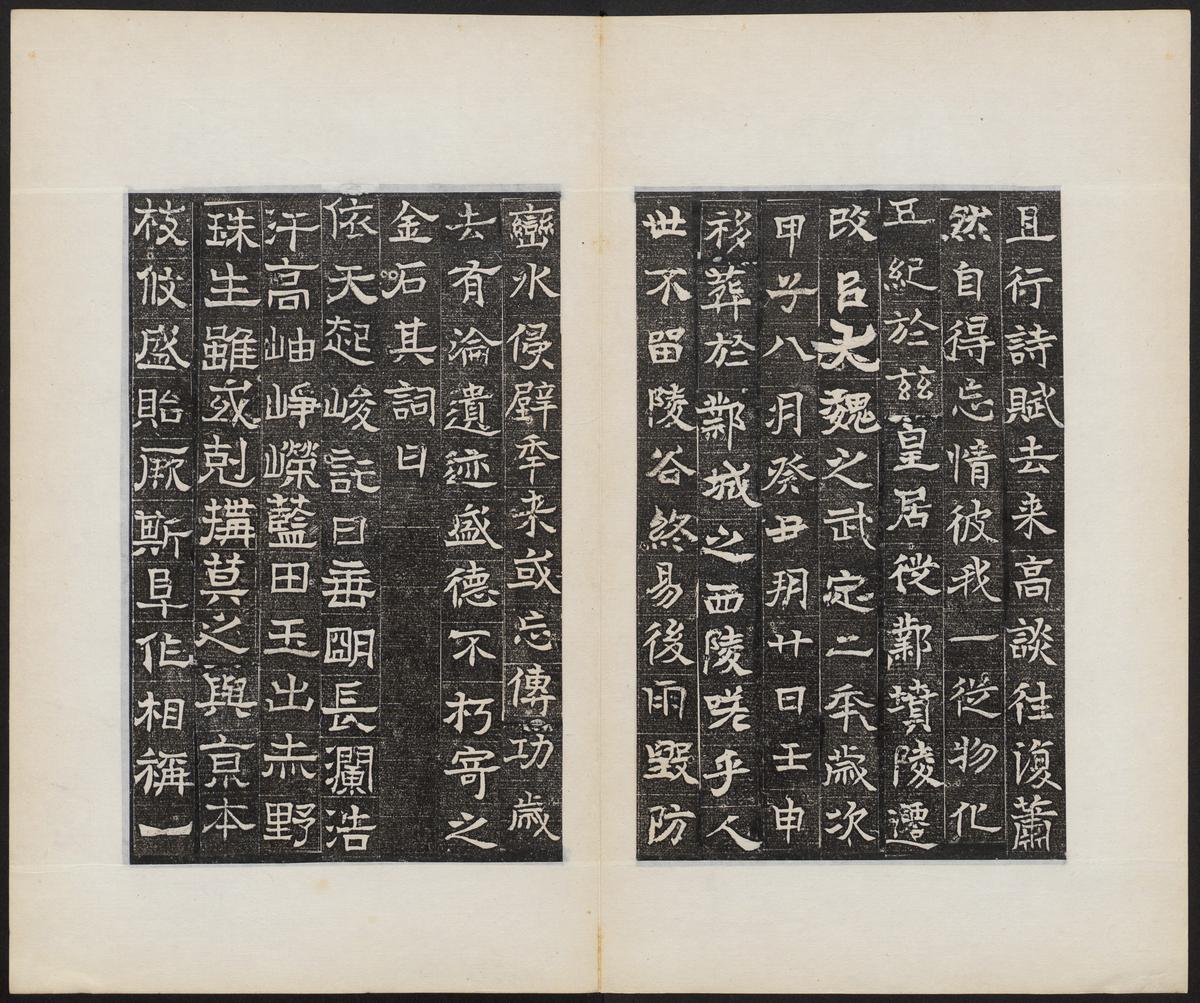 且行詩賦去来高談往復蕭
然自得忘情彼我一從物化
五紀於玆皇居徙鄴墳陵遷
改吕大魏之武定二秊歳次
甲子八月癸丑朔廿日壬申
移葬於鄴城之西陵嗟乎人
世不留陵谷終易後雨毀防
巒水侵壁秊来或忘傳功歳
去有淪遺迹盛德不朽寄之
金石其詞曰
依天起峻託日垂明長瀾浩
汗高岫崢嶸藍田玉出赤野
珠生雖或剋搆莫之與京本
枝攸盛貽厥斯阜作相稱一